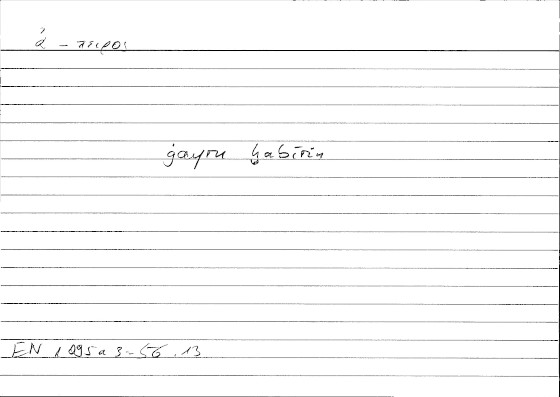 ἄ-πειρος
ġayru ḫabīrin
EN 1095a3-56.13